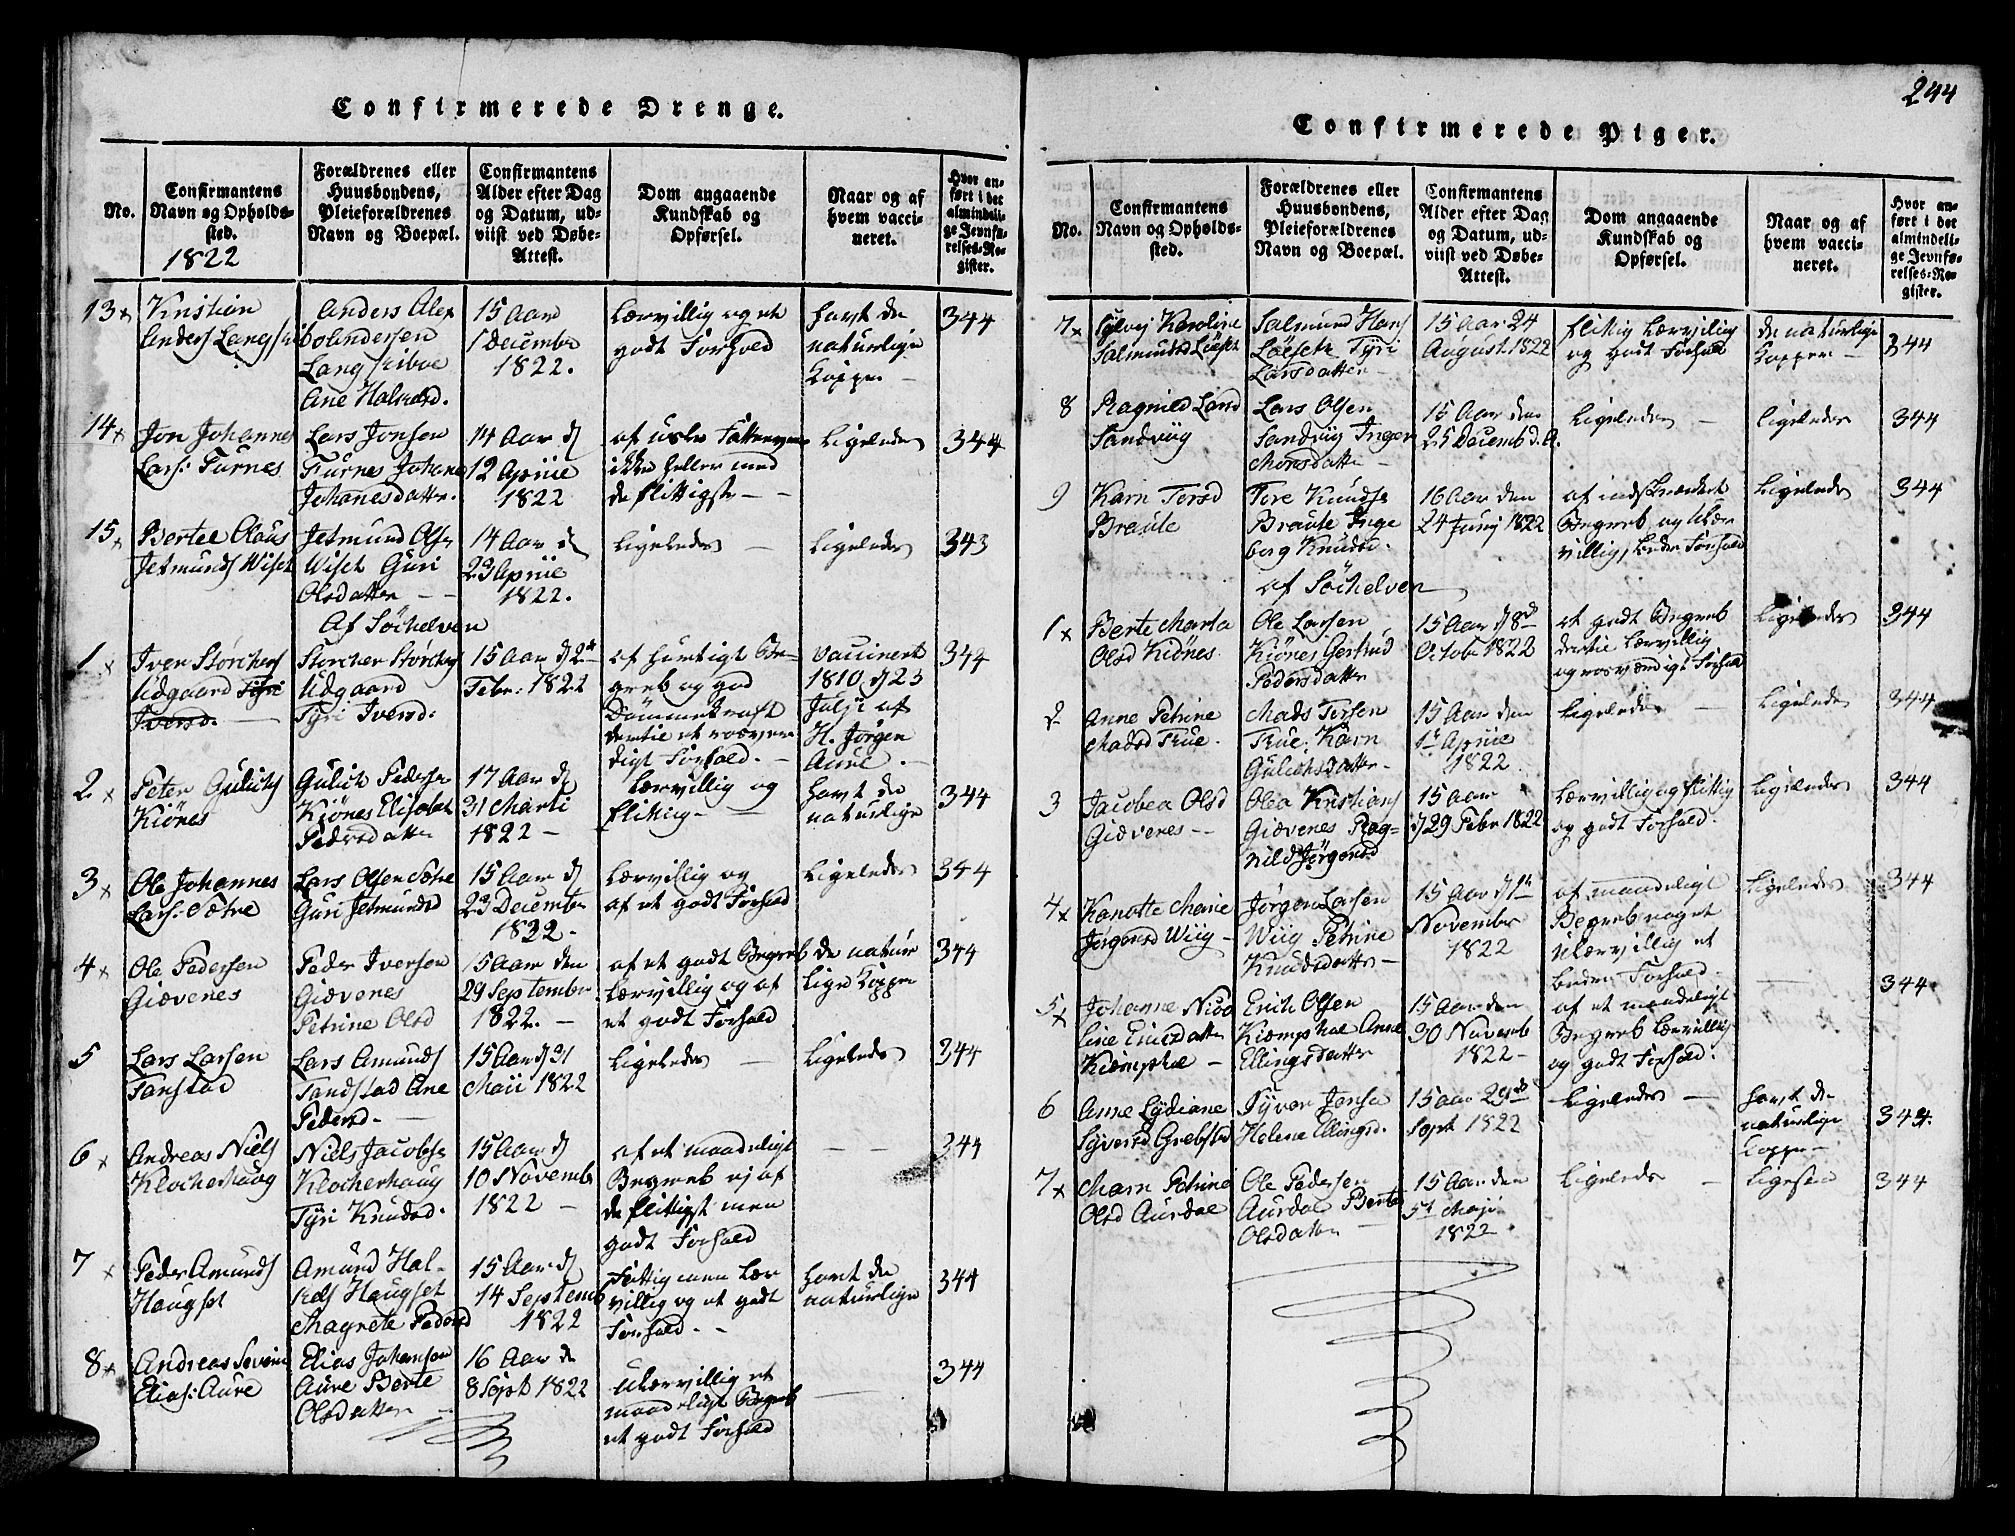 244
Confirmerede Drenge.
No.
Confirmantens
Navn og Opholds-
sted.
1822
Forældrenes eller
Huusbondens,
Pleieforældrenes
Navn og Boepæl.
Confirmantens
Alder efter Dag
og Datum, ud-
viist ved Døbe-
Attest.
Dom angaaende
Kundskab og
Opførsel.
Naar og af
hvem vacci-
neret.
Hvor an-
ført i det
almindeli-
ge Jevnfø-
relses-Re-
gister.
13 x
Kristian
Anders Langski
Anders Alex
boAndersen
Langskiboe
Ane Halvardsd.
15 Aar
1 December
1822.
Lærvillig og et
godt Forhold
havt de
naturlige
Kopper -
344
14 x
Jon Johannes
Lars: Furnes
Lars Jonsen
Furnes Johane
Johanesdatter.
14 Aar d
12 Apriie
1822
ikke heller med
de flittigste - -
Ligeledes
344
15 x
Bertel Claus
Jetmunds Wiset
Jetmund Ols
Wiset Guri
Olsdatter - -
14 Aar d
23 Apriie
1822.
Ligeledes -
Ligeledes
343
Af Söchelven
1 x
Iver Störchers
Udgaard Tyri
Iversd. -
Storcher Störchers
Udgaard
Tyri Iversd.
15 Aar d 2
Febr: 1822
af hurtigt Be-
greb og god
Dømmekraft
dertil et rosvær
digt Forhold. -
Vaccinert
1810 d 23
Julji af
H. Jörgen
Aure. -
344
2 x
Peter Gulichs
Kiönes
Gulich Peders
Kjönes Elisabet
Pedersdatter
17 Aar d
31 Marti
1822 -
Lærvillig og
flittig - -
havt de
naturlige
344
3 x
Ole Johannes
Lars: Sætre
Lars Olsen Sætre
Guri Jetmundsd
15 Aar d
23 December
1822 -
Lærvillig og
af et godt Forhold
Ligeledes
344
4 x
Ole Pedersen
Giævenes
Peder Iversen
Giævenes
Petrine Olsd
15 Aar den
29 September
1822. -
af et godt Begreb
Lærvillig og af
et godt Forhold
de natur
lige Kopper
344
5
Lars Larsen
Tanstad
Lars Amunds
Tandstad Ane
Pedersd. -
15 Aar d 31
Maii 1822
Ligeledes -
Ligeledes
344
6 x
Andreas Niels
Klocherhaug
Niels Jacobse
Klocherhaug
Tyri Knudsd.
15 Aar d
10 Novemb
1822 -
af et maadeligt
Begreb ej af
de flittigst men
godt Forhold
- -
344
7 x
Peder Amunds
Haugset
Amund Hal-
kels Haugset
Magrete Pedersd
15 Aar d
14 Septemb
1822
Fattig men Lær
villig og et godt
Forhold. -
havt de
naturlige
344
8 x
Andreas Severin
Elias: Aure
Elias Johansen
Aure Berte
Olsdatter
16 Aar de
8 Sept 1822
ulærvillig et
maadeligt Begreb
et godt Forhold
-
344
Confirmerede Piger.
No.
Confirmantens
Navn og Opholds-
sted.
Forældrenes eller
Huusbondens,
Pleieforældrenes
Navn og Boepæl.
Confirmantens
Alder efter Dag
og Datum, ud-
viist ved Døbe-
Attest.
Dom angaaende
Kundskab og
Opførsel.
Naar og af
hvem vacci-
neret.
Hvor an-
ført i det
almindeli-
ge Jevnfø-
relses-Re-
gister.
7 x
Sylvej Karoline
Salmunds Löeset
Salmund Hans
Löeset Tyri
Larsdatter -
15 Aar 24
August. 1822
flittig Lærvillig
og godt Forhold
de naturlige
Kopper -
344
8
Ragnild Larsd
Sandviig
Lars Olsen
Sandviig Inger
Monsdatter -
15 Aar den
25 Decemb d. A.
Ligeledes -
Ligeledes
344
9
Karn Torsd
Braute
Tore Knuds
Braute Inge
borg Knudsd.
16 Aar den
24 Junj 1822
af indskrænket
Begreb og Lær
villig, beder Forhold
Ligeledes
344
af Söchelven
1 x
Berte Marta
Olsd Kiönes
Ole Larsen
Kiönes Gertrud
Pedersdatter
15 Aar d 8
Octob 1822
et godt Begreb
dertil Lærvillig
og rosværdigt Forhold
Ligeledes
344
2
Anne Petrine
Madsd True.
Mads Torsen
True. Karn
Gulichsdatter -
15 Aar den
1 Apriie
1822
Ligeledes -
Ligeledes
344
3
Jacobea Olsd
Giævenes - -
Olea Kristians
Giævenes Rag-
nild Jörgensd
15 Aar
d 29 Febr 1822
Lærvillig og flittig
og godt Forhold.
Ligeledes
344
4 x
Kanotte Marie
Jørgensd Wiig -
Jørgen Larsen
Wiig Petrine
Knudsdatter -
15 Aar d 1
November
1822
af maadeligt
Begreb noget
Ulærvillig et
beder Forhold -
Ligeledes
344
5 x
Johanne Nico
line Ericsdatter
Kiempshoe -
Erich Olsen
Kiempshoe Anne
Ellingsdatter
15 Aar den
30 Novemb
1822 -
af et maadeligt
Begreb Lærvillig
og godt Forhold.
-
344
6
Anne Lydiane
Syversd Grebstad
Syver Jonse
Helene Ellingsd.
15 Aar 29
Sept 1822
Ligeledes -
havt de
naturlige
Kopper -
344.
7 x
Marn Petrine
Olsd Aurdal
Ole Pedersen
Aurdal Berte
Olsdatter -
15 Aar den
5 Maji
1822
Ligeledes -
Ligesaa
344